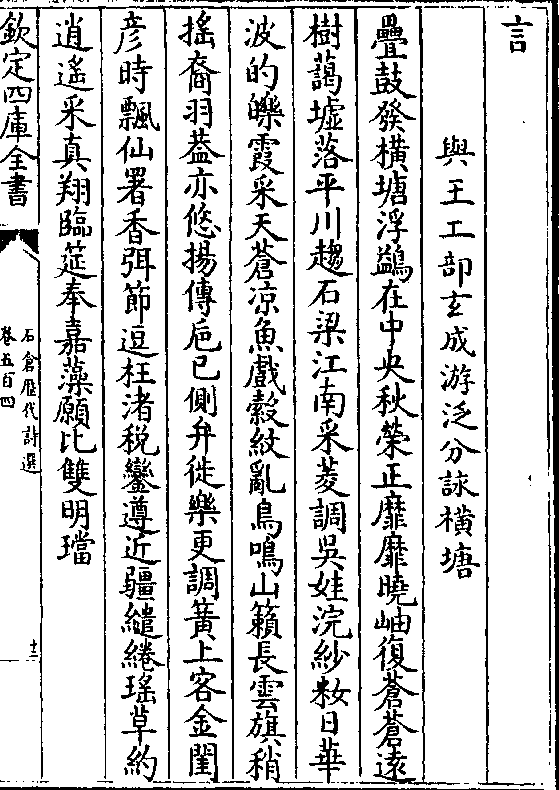 言
與王工部玄成游泛分詠橫塘
疊鼓發橫塘浮鷁在中央秋榮正靡靡曉岫復蒼蒼遠
樹藹墟落平川趨石梁江南采菱調吳娃浣紗粧日華
波的皪霞采天蒼凉魚戲縠紋亂鳥鳴山籟長雲旗稍
搖裔羽葢亦悠揚傳巵已側弁徙樂更調簧上客金閨
彦時飄仙署香弭節逗枉渚稅鑾遵近疆繾綣瑤草約
逍遙采真翔臨筵奉嘉藻願比雙明璫
欽定四庫全書
石倉歷代詩選
卷五百四
十二